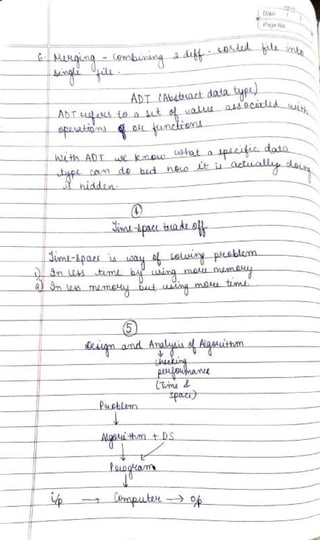 Date
Page No.
6. Merging - Combining 2 diff. sorted file into
single file.
ADT (Abstract data type)
ADT refers to a set of value associated with
operations or functions.
With ADT we know what a specific data
type can do but how it is actually doing
is hidden.
④
Time-space trade off
Time-space is way of solving problem
1) In less time by using more memory
2) In less memory but using more time.
⑤
Design and Analysis of Algorithm
↓
checking
performance
(Time &
space)
Problem
↓
Algorithm + DS
↓ ↙
Program
↓
i/p → Computer → o/p